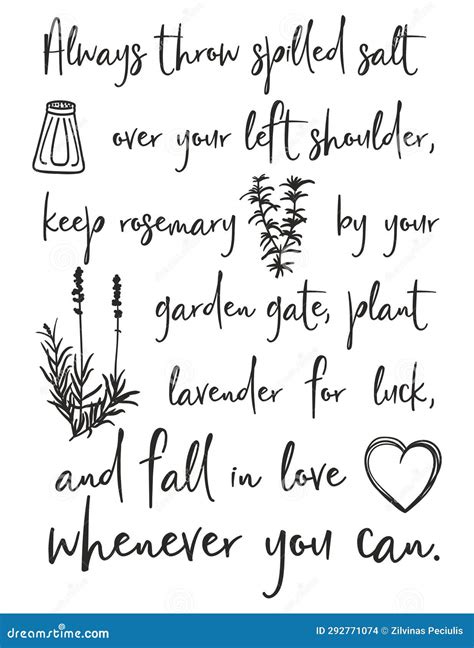 Always throw spilled salt
over your left shoulder,
keep rosemary by your
garden gate, plant
lavender for luck,
and fall in love
whenever you can.
dreamstime.com
ID 292771074 © Zilvinas Peciulis